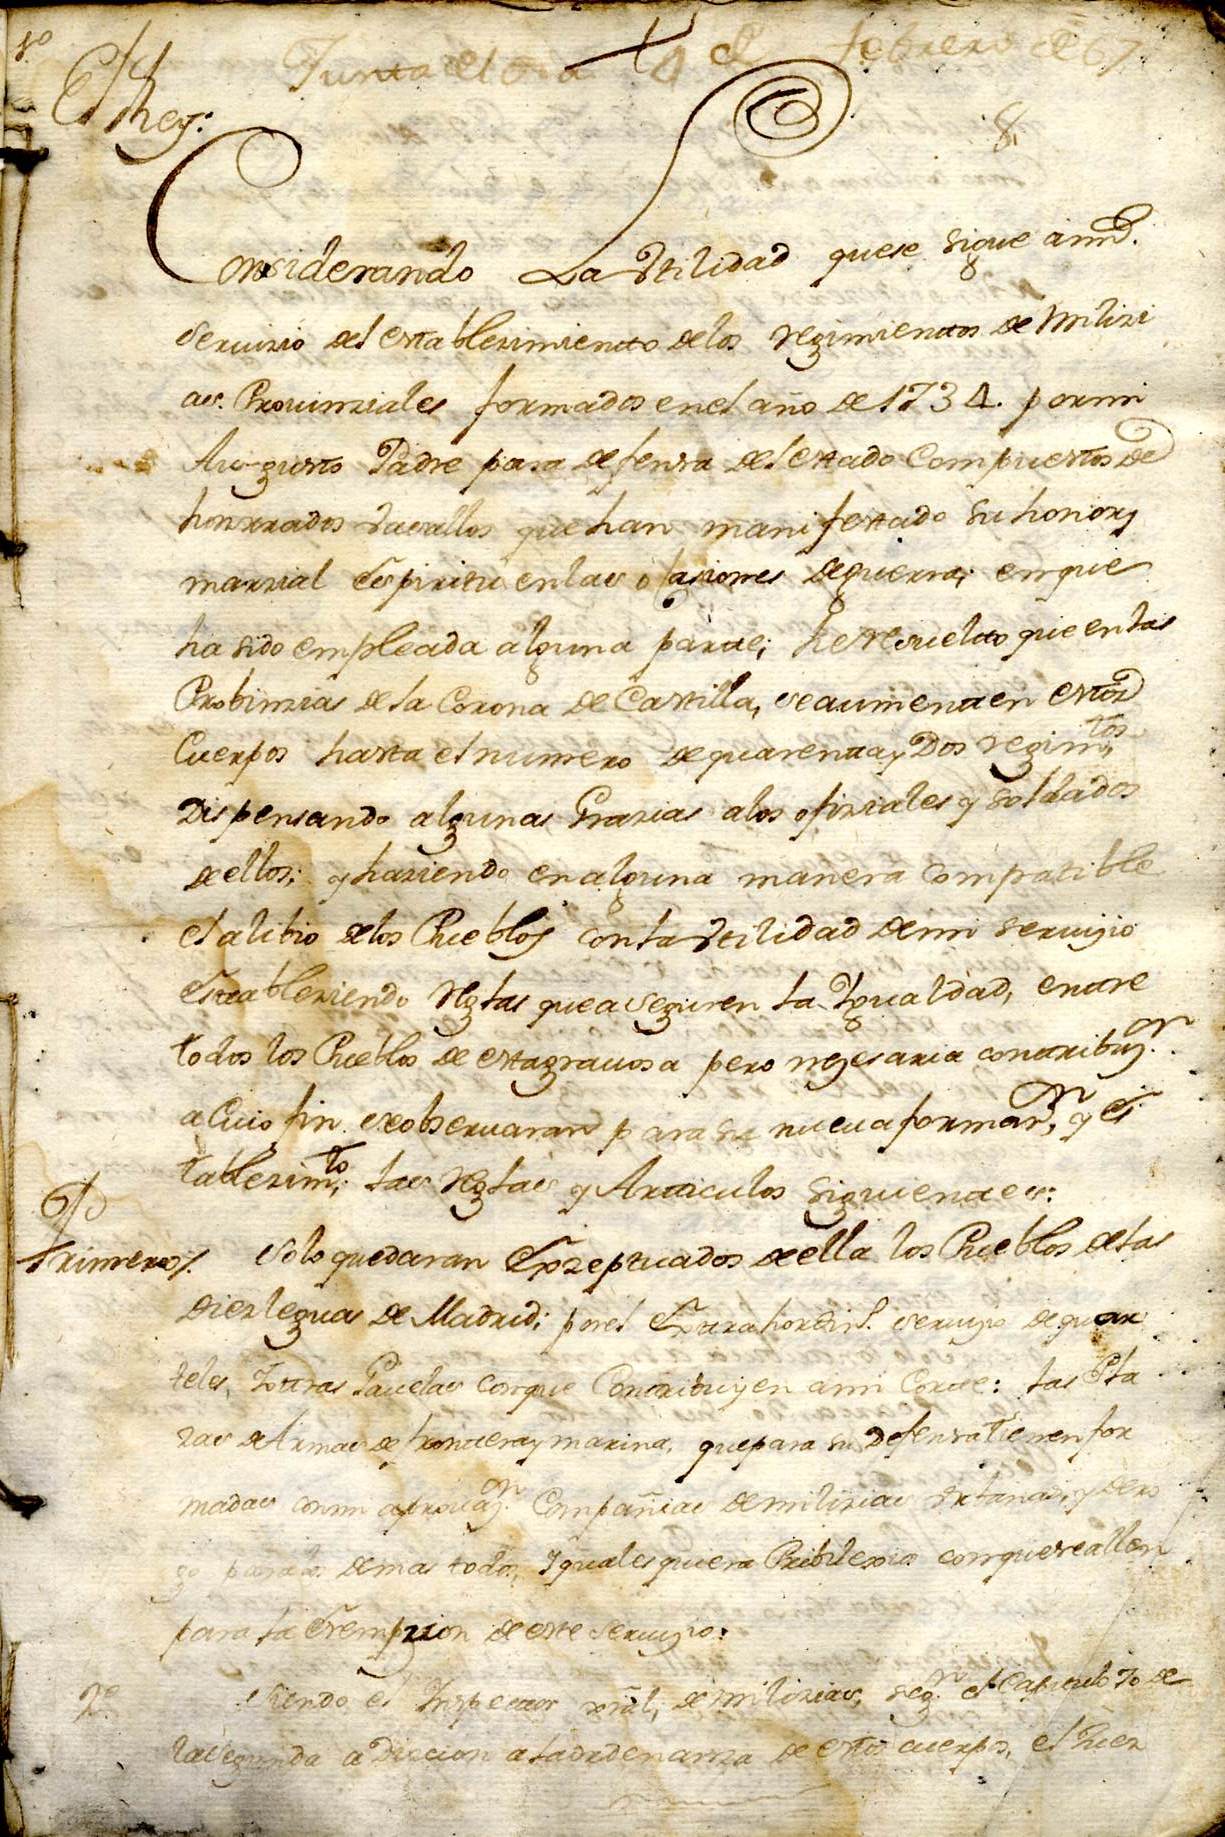 Junta el dia 4 de febrero de 67
El Rey:
8.
Considerando La Vtilidad quese sigue ami Rl.
seruizio del establezimiento delos regimientos de Milizi
as. Prouinziales formados enel año de 1734. pormi
Augusto Padre para defensa del estado Compuestos de
honrrados vasallos que han manifestado su honor y
marzial Espiritu enlas ocasiones deguerra; enque
ha sido empleada alguna parte; he resuelto que enlas
Probinzias de la Corona de Castilla, seaumenten estos
Cuerpos hasta el numero de quarenta y Dos regimtos,
Dispensando algunas Grazias alos ofiziales y soldados
de ellos; y haziendo en alguna manera compatible
el alibio delos Pueblos con la Vtilidad demi seruizio
Estableziendo reglas que aseguren la Igualdad, entre
todos los Pueblos de esta grauosa pero nezesaria contribuzon.
a Cuio fin se obseruaran para su nueua formazon, y Es
tablezimto; las reglas y Articulos siguientes:
Primero. Solo quedaran Exzeptuados de ella los Pueblos delas
Diez leguas de Madrid; por el Extrahordino. seruizio de quar
teles, Y otras Gauelas conque Contribuyen ami Corte: las Pla
zas de Armas de frontera y marina, que para su Defensa tienen for
madas conmi aprouazon. Compañias de milizias Vrbanas, y dero
go para los demas todos, Y qualesquiera Pribilexios conque se allen
para la Exempzion de este seruizio:
2o. Siendo el Inspector gral, de milizias, segn. el Capitulo 70 de
la segunda adizcion a la ordenanza de estos cuerpos, el Juez